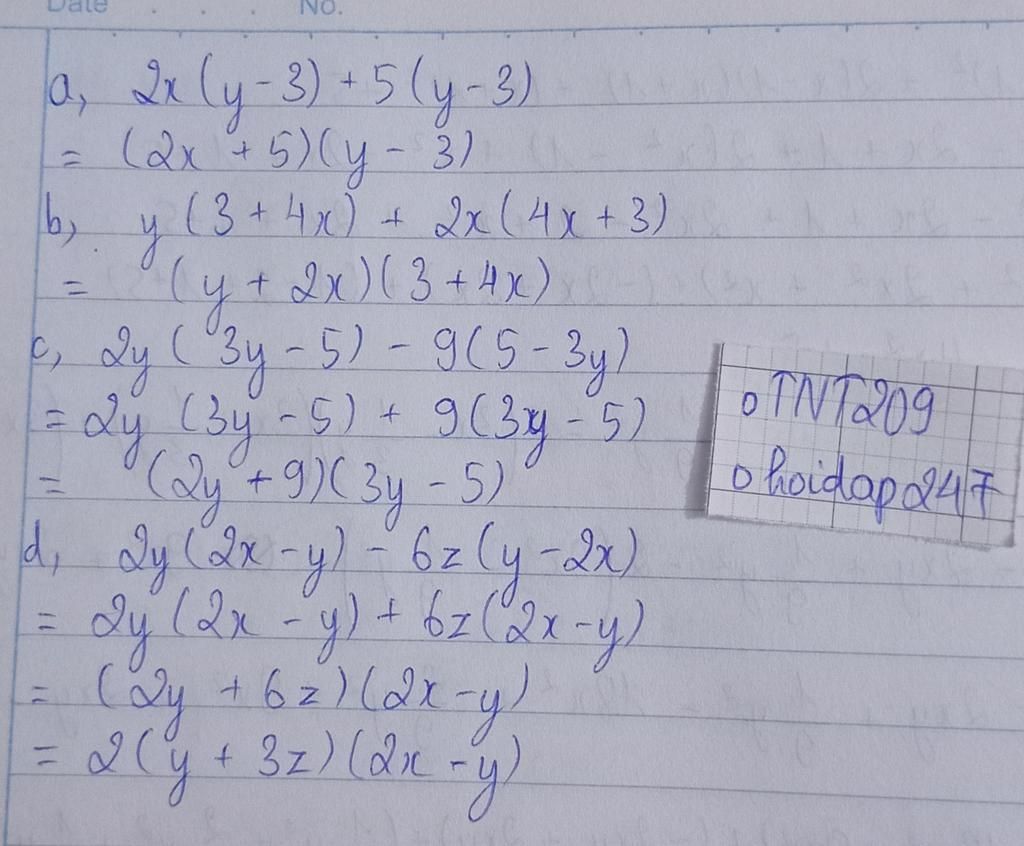 Date No.
a, 2x(y-3) + 5(y-3)
= (2x + 5)(y - 3)
b, y(3 + 4x) + 2x(4x + 3)
= (y + 2x)(3 + 4x)
c, 2y(3y - 5) - 9(5 - 3y)
= 2y(3y - 5) + 9(3y - 5)
= (2y + 9)(3y - 5)
d, 2y(2x - y) - 6z(y - 2x)
= 2y(2x - y) + 6z(2x - y)
= (2y + 6z)(2x - y)
= 2(y + 3z)(2x - y)
o TNT209
o hoidap247